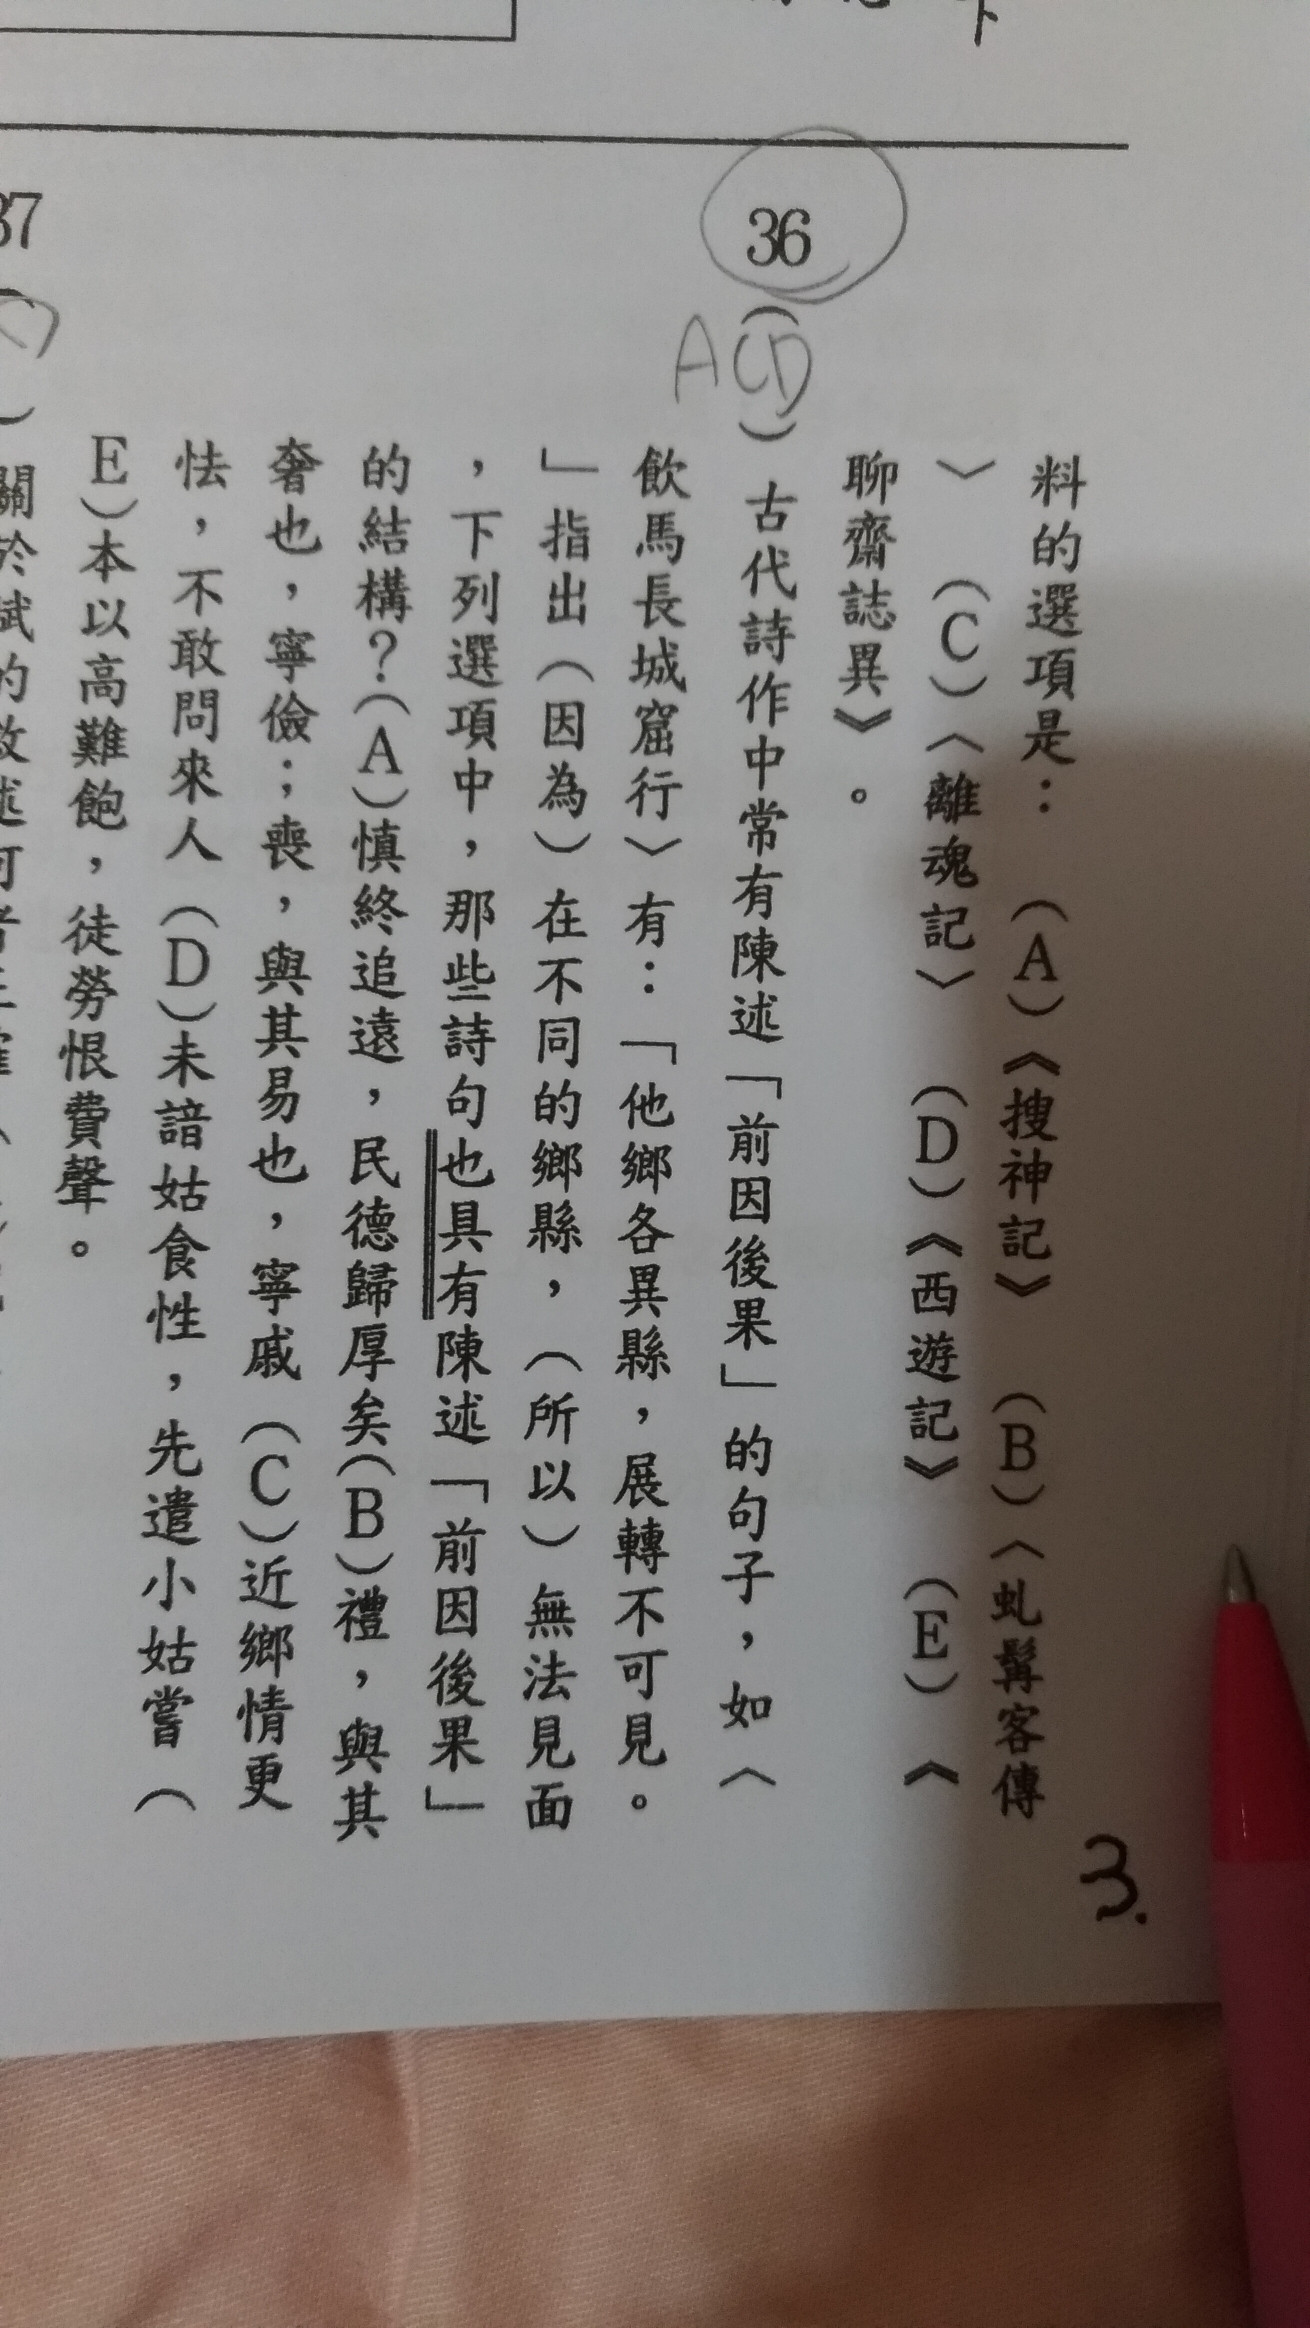 料的選項是：　（A）《搜神記》　（B）〈虬髯客傳
〉　（C）〈離魂記〉　（D）《西遊記》　（E）《
聊齋誌異》。
36（ACD）古代詩作中常有陳述「前因後果」的句子，如〈
飲馬長城窟行〉有：「他鄉各異縣，展轉不可見。
」指出（因為）在不同的鄉縣，（所以）無法見面
，下列選項中，那些詩句也具有陳述「前因後果」
的結構？（A）慎終追遠，民德歸厚矣（B）禮，與其
奢也，寧儉；喪，與其易也，寧戚（C）近鄉情更
怯，不敢問來人（D）未諳姑食性，先遣小姑嘗（
E）本以高難飽，徒勞恨費聲。
37
3.